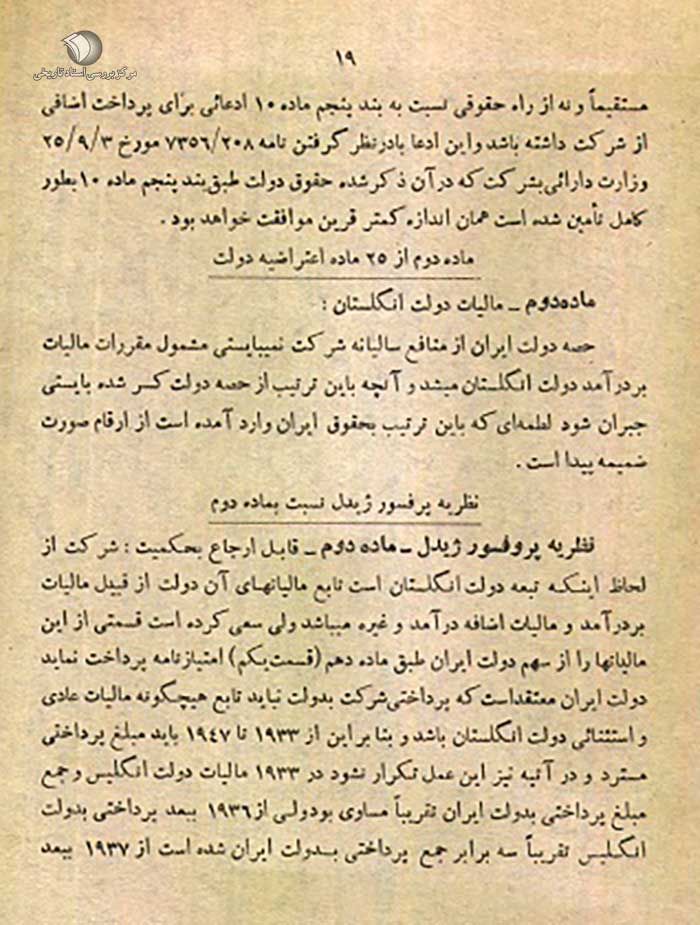 مرکز بررسی اسناد تاریخی
۱۹
مستقیماً و نه از راه حقوقی نسبت به بند پنجم ماده ۱۰ ادعائی برای پرداخت اضافی
از شرکت داشته باشد واین ادعا بادرنظر گرفتن نامه ۷۳۵۶/۲۰۸ مورخ ۲۵/۹/۳
وزارت دارائی بشرکت که درآن ذکر شده حقوق دولت طبق بند پنجم ماده ۱۰ بطور
کامل تأمین شده است همان اندازه کمتر قرین موافقت خواهد بود .
ماده دوم از ۲۵ ماده اعتراضیه دولت
ماده دوم ــ مالیات دولت انگلستان :
حصه دولت ایران از منافع سالیانه شرکت نمیبایستی مشمول مقررات مالیات
بردرآمد دولت انگلستان میشد و آنچه باین ترتیب از حصه دولت کسر شده بایستی
جبران شود لطمه‌ای که باین ترتیب بحقوق ایران وارد آمده است از ارقام صورت
ضمیمه پیدا است .
نظریه پرفسور ژیدل نسبت بماده دوم
نظریه پروفسور ژیدل ــ ماده دوم ــ قابل ارجاع بحکمیت : شرکت از
لحاظ اینکه تبعه دولت انگلستان است تابع مالیاتهای آن دولت از قبیل مالیات
بردرآمد و مالیات اضافه درآمد و غیره میباشد ولی سعی کرده است قسمتی از این
مالیاتها را از سهم دولت ایران طبق ماده دهم (قسمت‌یکم) امتیازنامه پرداخت نماید
دولت ایران معتقداست که پرداختی شرکت بدولت نباید تابع هیچگونه مالیات عادی
و استثنائی دولت انگلستان باشد و بنا براین از ۱۹۳۳ تا ۱۹۴۷ باید مبلغ پرداختی
مسترد و در آتیه نیز این عمل تکرار نشود در ۱۹۳۳ مالیات دولت انگلیس و جمع
مبلغ پرداختی بدولت ایران تقریباً مساوی بودولی از ۱۹۳۶ ببعد پرداختی بدولت
انگلیس تقریباً سه برابر جمع پرداختی بدولت ایران شده است از ۱۹۳۷ ببعد